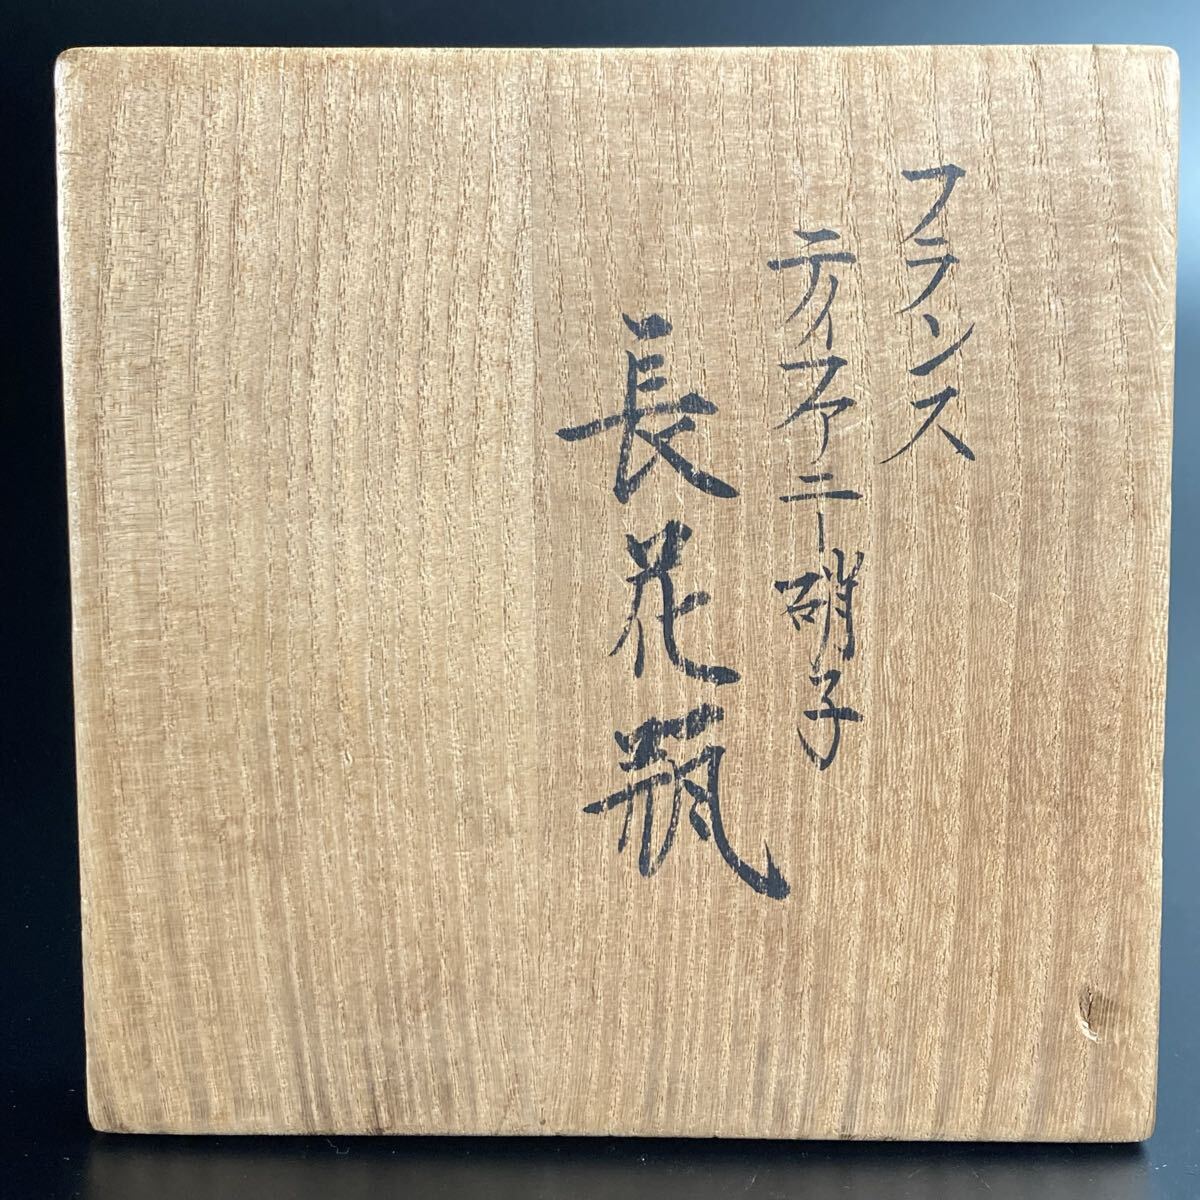 フランス
ティファニー硝子
長花瓶